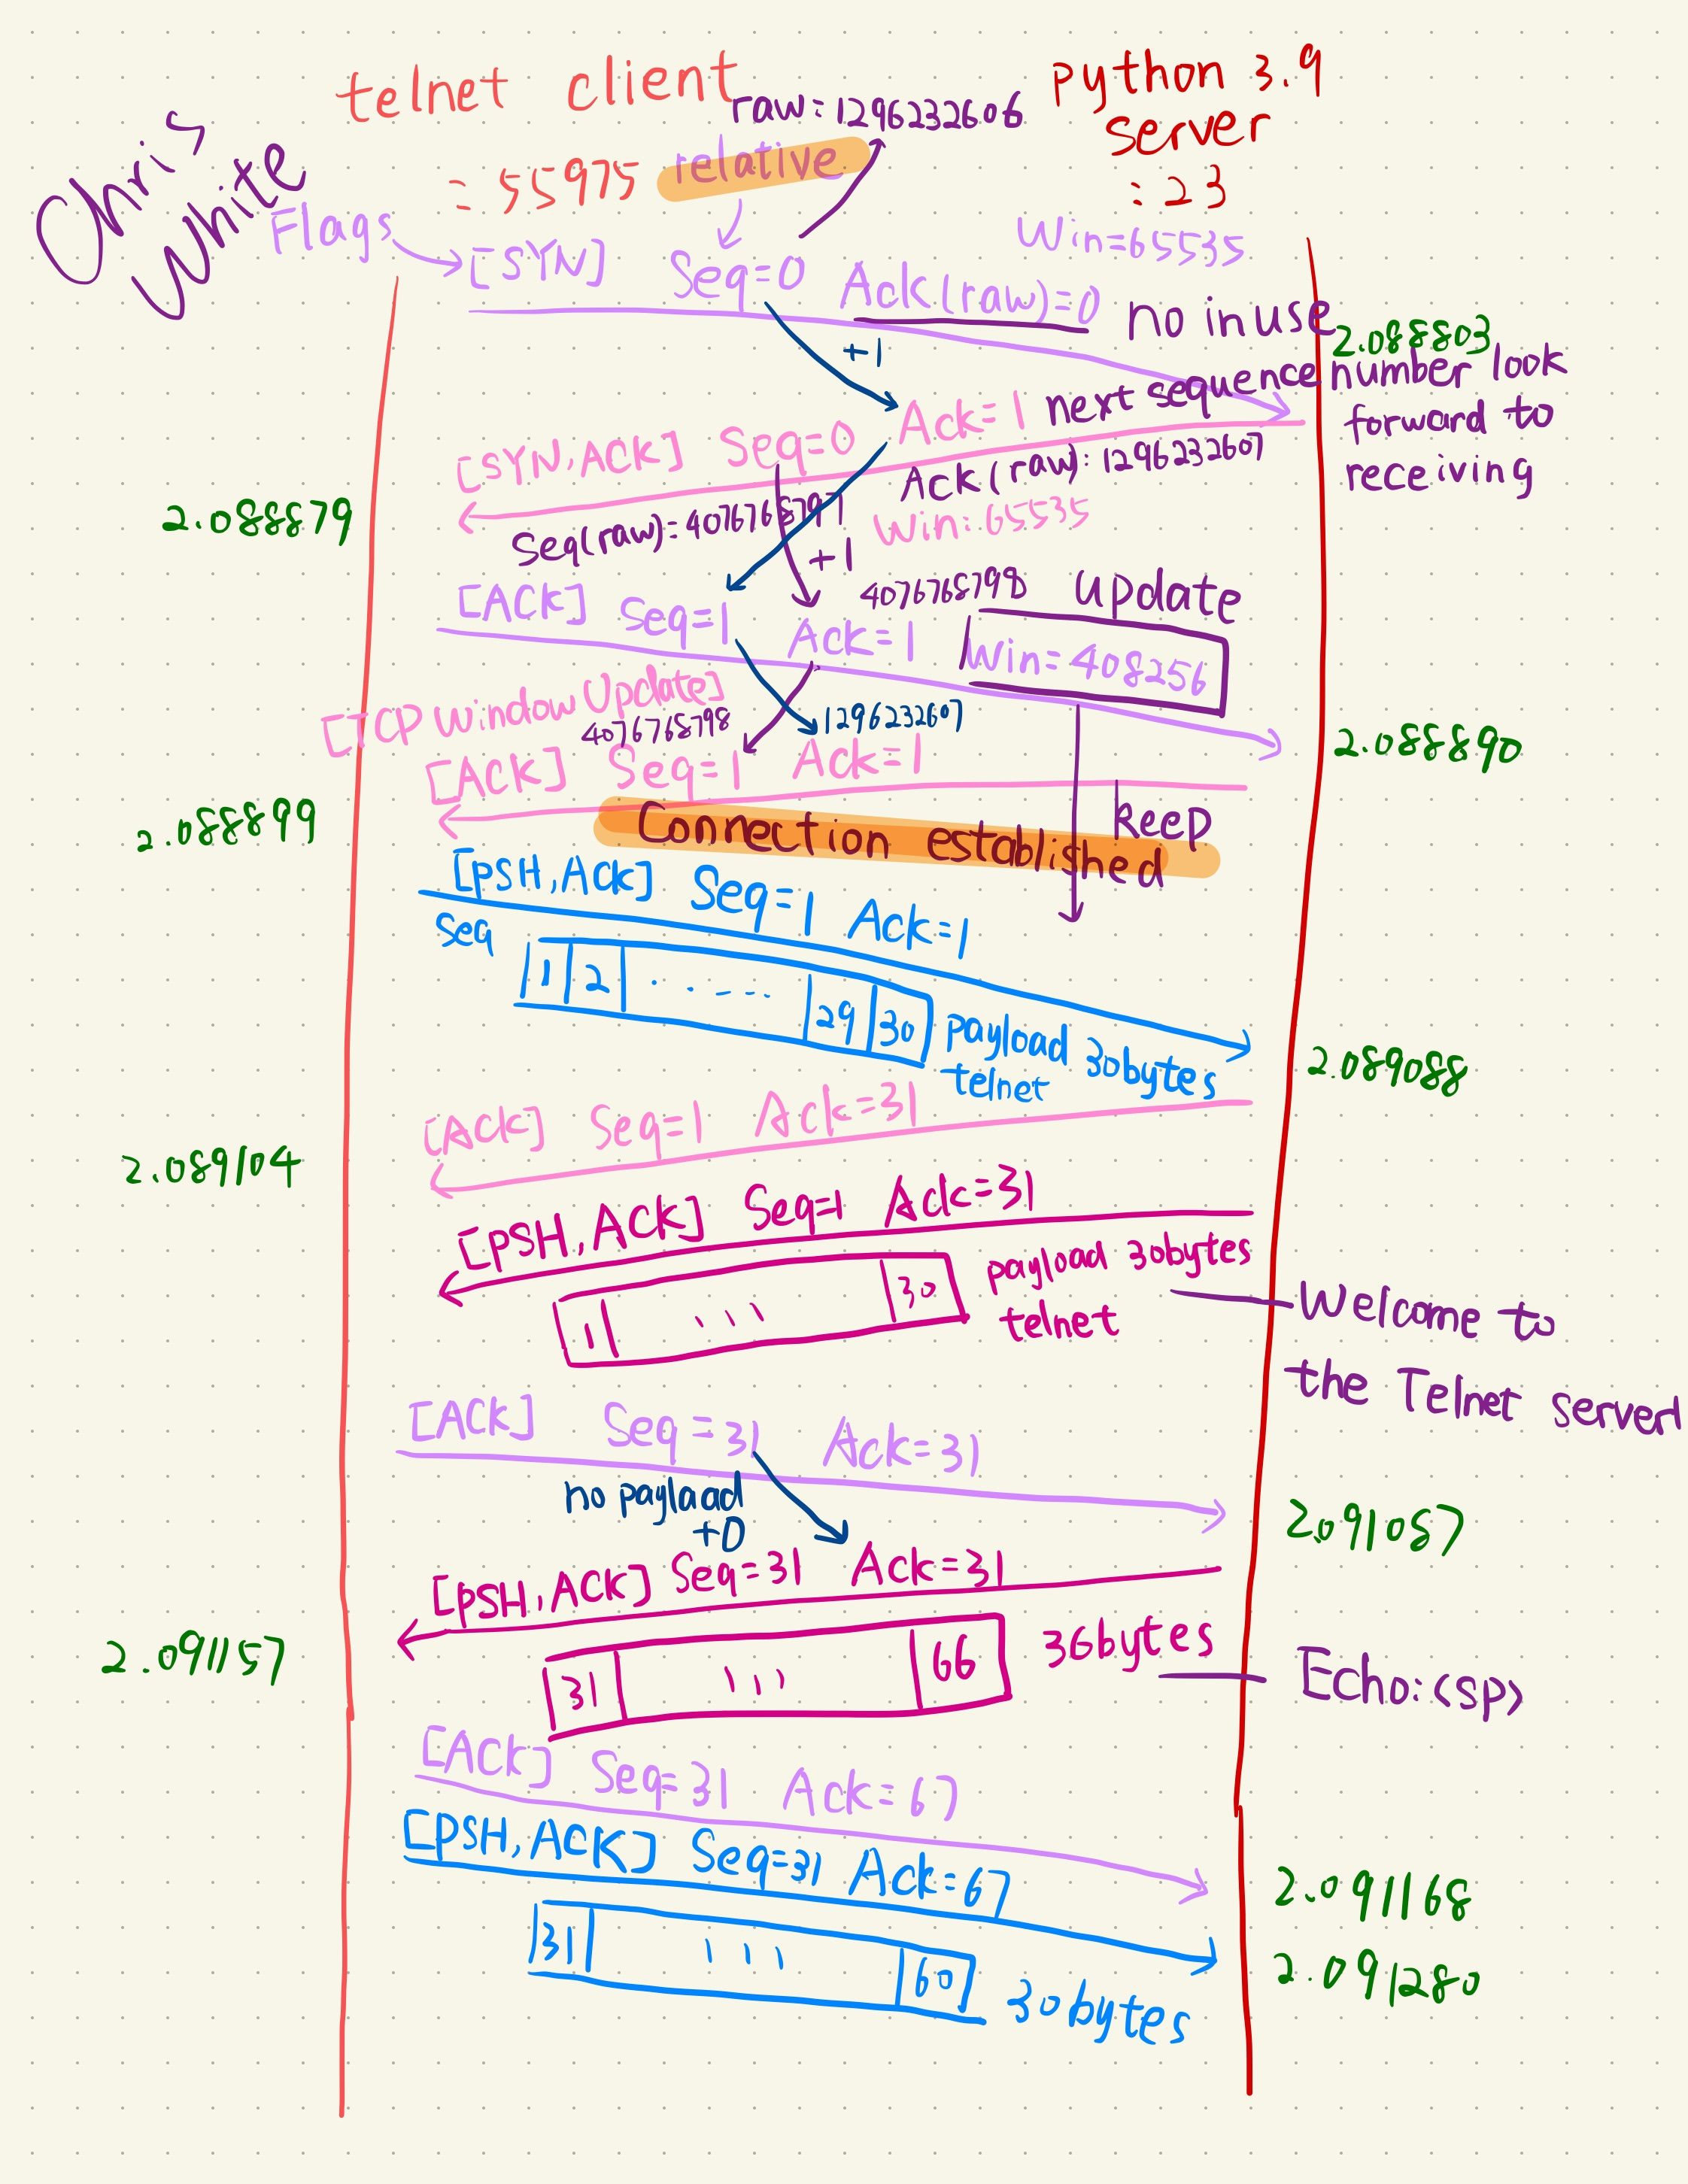 Chris
White
telnet client
:55975
python 3.9
server
:23
raw:1296232606
relative
Flags
[SYN] Seq=0 Ack(raw)=0 no in use
Win=65535
2.088803
+1
[SYN,ACK] Seq=0 Ack=1 next sequence number look
forward to
receiving
Ack(raw):1296232607
Seq(raw)=4076768797
Win:65535
2.088879
+1
4076768798 update
[ACK] Seq=1 Ack=1 Win=408256
2.088890
[TCP Window Update]
4076768798 1296232607
[ACK] Seq=1 Ack=1
2.088899
Keep
Connection established
[PSH,ACK] Seq=1 Ack=1
Seq
1 2 ..... 29 30
payload 30bytes
telnet
2.089088
[ACK] Seq=1 Ack=31
2.089104
[PSH,ACK] Seq=1 Ack=31
1 ... 30
payload 30bytes
telnet
Welcome to
the Telnet server!
[ACK] Seq=31 Ack=31
no paylaad
+0
2.091087
[PSH,ACK] Seq=31 Ack=31
2.091157
31 ... 66
36bytes
Echo:<sp>
[ACK] Seq=31 Ack=67
2.091168
[PSH,ACK] Seq=31 Ack=67
2.091280
31 ... 60
30bytes